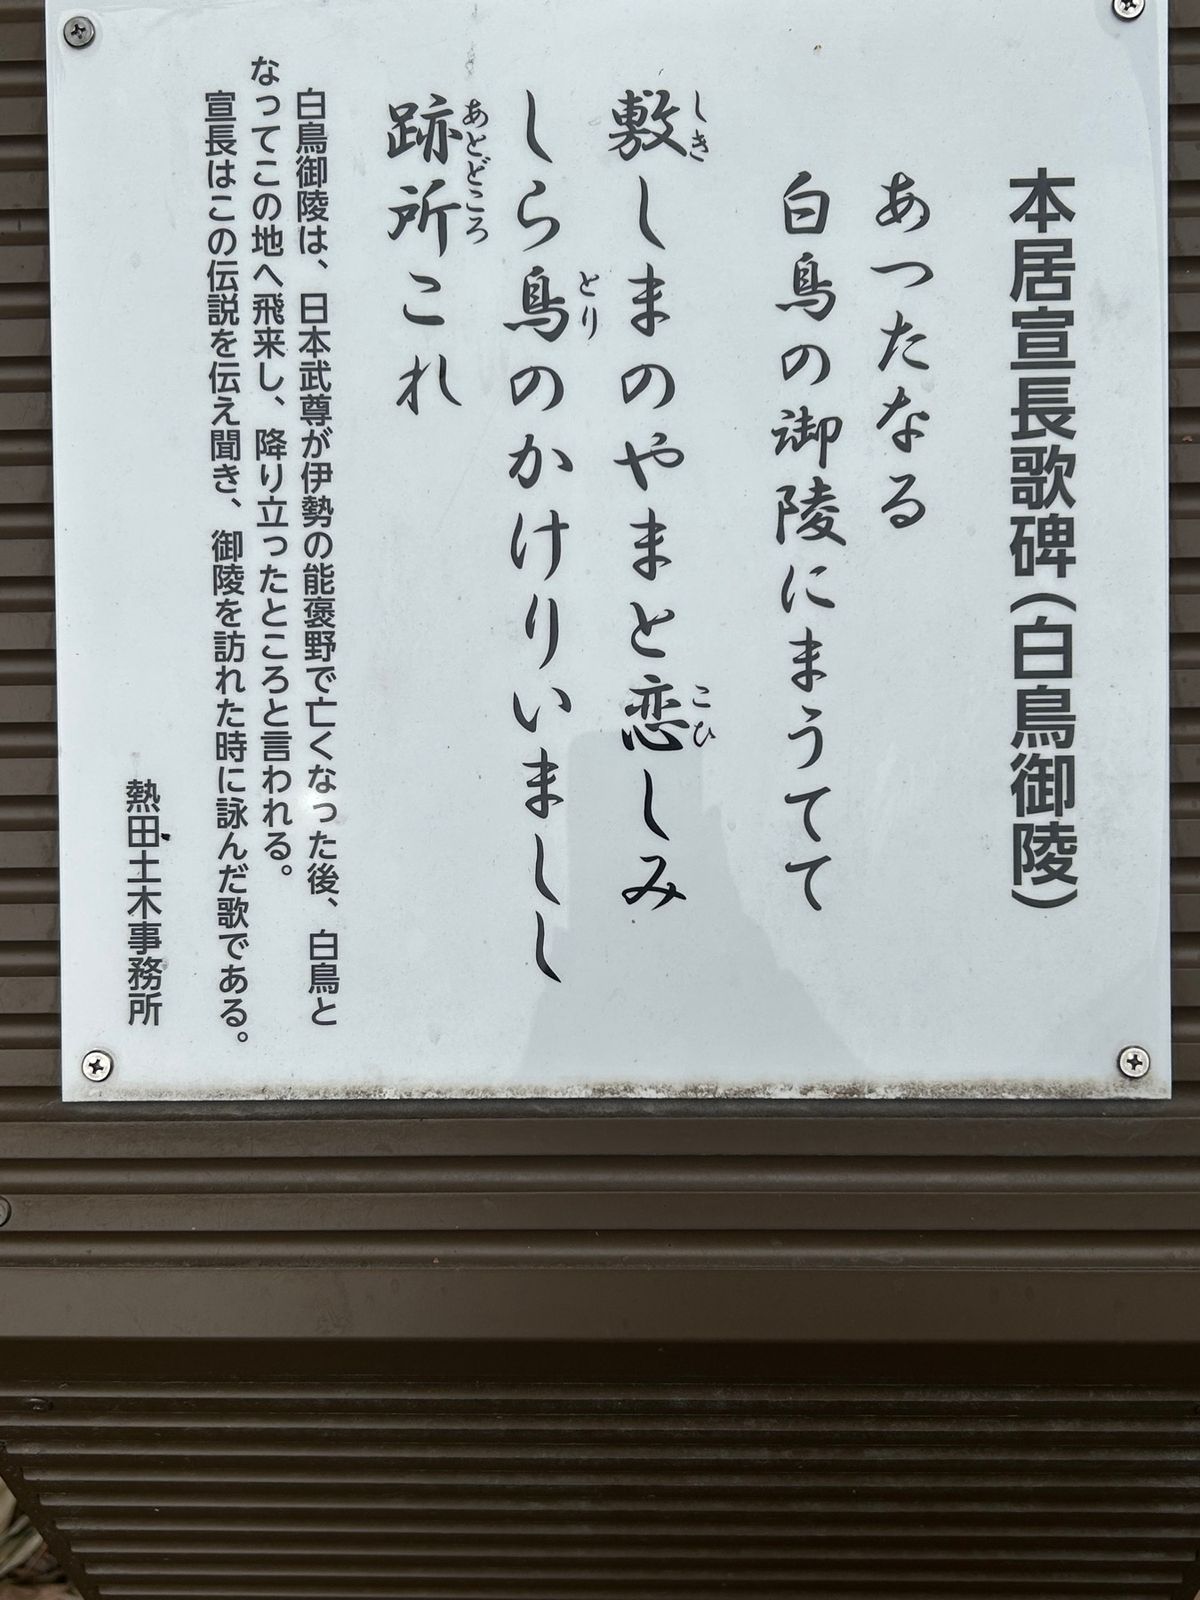 本居宣長歌碑(白鳥御陵)
あつたなる
白鳥の御陵にまうてて
敷しまのやまと恋しみ
しら鳥のかけりいましし
跡所これ
しき
こひ
とり
あとどころ
白鳥御陵は、日本武尊が伊勢の能褒野で亡くなった後、白鳥と
なってこの地へ飛来し、降り立ったところと言われる。
宣長はこの伝説を伝え聞き、御陵を訪れた時に詠んだ歌である。
熱田土木事務所